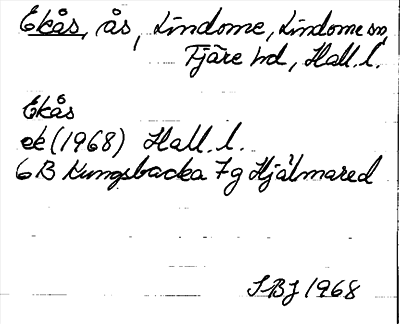 Ekås, ås, Lindome, Lindome sn,
Fjäre hd, Hall. l.
Ekås
ek (1968) Hall. l.
6 B Kungsbacka 7g Hjälmared
SBJ 1968